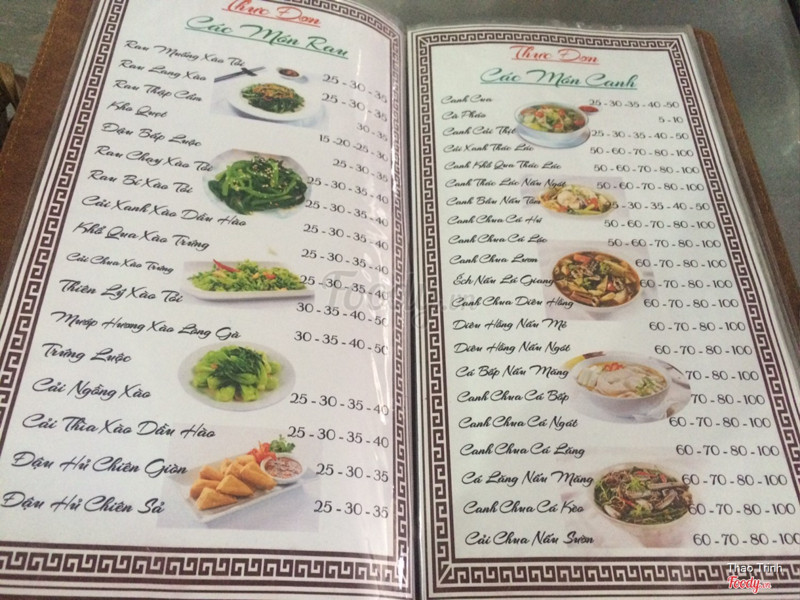 Thực Đơn
Các Món Rau
Rau Muống Xào Tỏi 25 - 30 - 35
Rau Lang Xào 25 - 30 - 35
Rau Thập Cẩm 30 - 35
Kho Quẹt 15 - 20 - 25 - 30
Đậu Bắp Luộc 25 - 30 - 35
Rau Chay Xào Tỏi 25 - 30 - 35 - 40
Rau Bí Xào Tỏi 25 - 30 - 35 - 40
Cải Xanh Xào Dầu Hào 25 - 30 - 35 - 40
Khổ Qua Xào Trứng 25 - 30 - 35 - 40
Cải Chua Xào Trứng 25 - 30 - 35 - 40
Thiên Lý Xào Tỏi 30 - 35 - 40 - 50
Mướp Hương Xào Lòng Gà 30 - 35 - 40 - 50
Trứng Luộc
Cải Ngồng Xào 25 - 30 - 35 - 40
Cải Thìa Xào Dầu Hào 25 - 30 - 35 - 40
Đậu Hủ Chiên Giòn 25 - 30 - 35
Đậu Hủ Chiên Sả 25 - 30 - 35
Thực Đơn
Các Món Canh
Canh Cua 25 - 30 - 35 - 40 - 50
Cà Pháo 5 - 10
Canh Cải Thịt 25 - 30 - 35 - 40 - 50
Cải Xanh Thác Lác 50 - 60 - 70 - 80 - 100
Canh Khổ Qua Thác Lác 50 - 60 - 70 - 80 - 100
Canh Thác Lác Nấu Ngót 50 - 60 - 70 - 80 - 100
Canh Bầu Nấu Tôm 25 - 30 - 35 - 40 - 50
Canh Chua Cá Hú 50 - 60 - 70 - 80 - 100
Canh Chua Cá Lóc 50 - 60 - 70 - 80 - 100
Canh Chua Lươn 60 - 70 - 80 - 100
Ếch Nấu Lá Giang 60 - 70 - 80 - 100
Canh Chua Diêu Hồng 60 - 70 - 80 - 100
Diêu Hồng Nấu Mẻ 60 - 70 - 80 - 100
Diêu Hồng Nấu Ngót 60 - 70 - 80 - 100
Cá Bớp Nấu Măng 70 - 80 - 100
Canh Chua Cá Bớp 60 - 70 - 80 - 100
Canh Chua Cá Ngát 60 - 70 - 80 - 100
Canh Chua Cá Lăng 60 - 70 - 80 - 100
Cá Lăng Nấu Măng 60 - 70 - 80 - 100
Canh Chua Cá Kèo 60 - 70 - 80 - 100
Cải Chua Nấu Sườn 60 - 70 - 80 - 100
Foody.vn
Thao Trinh
Foody.vn